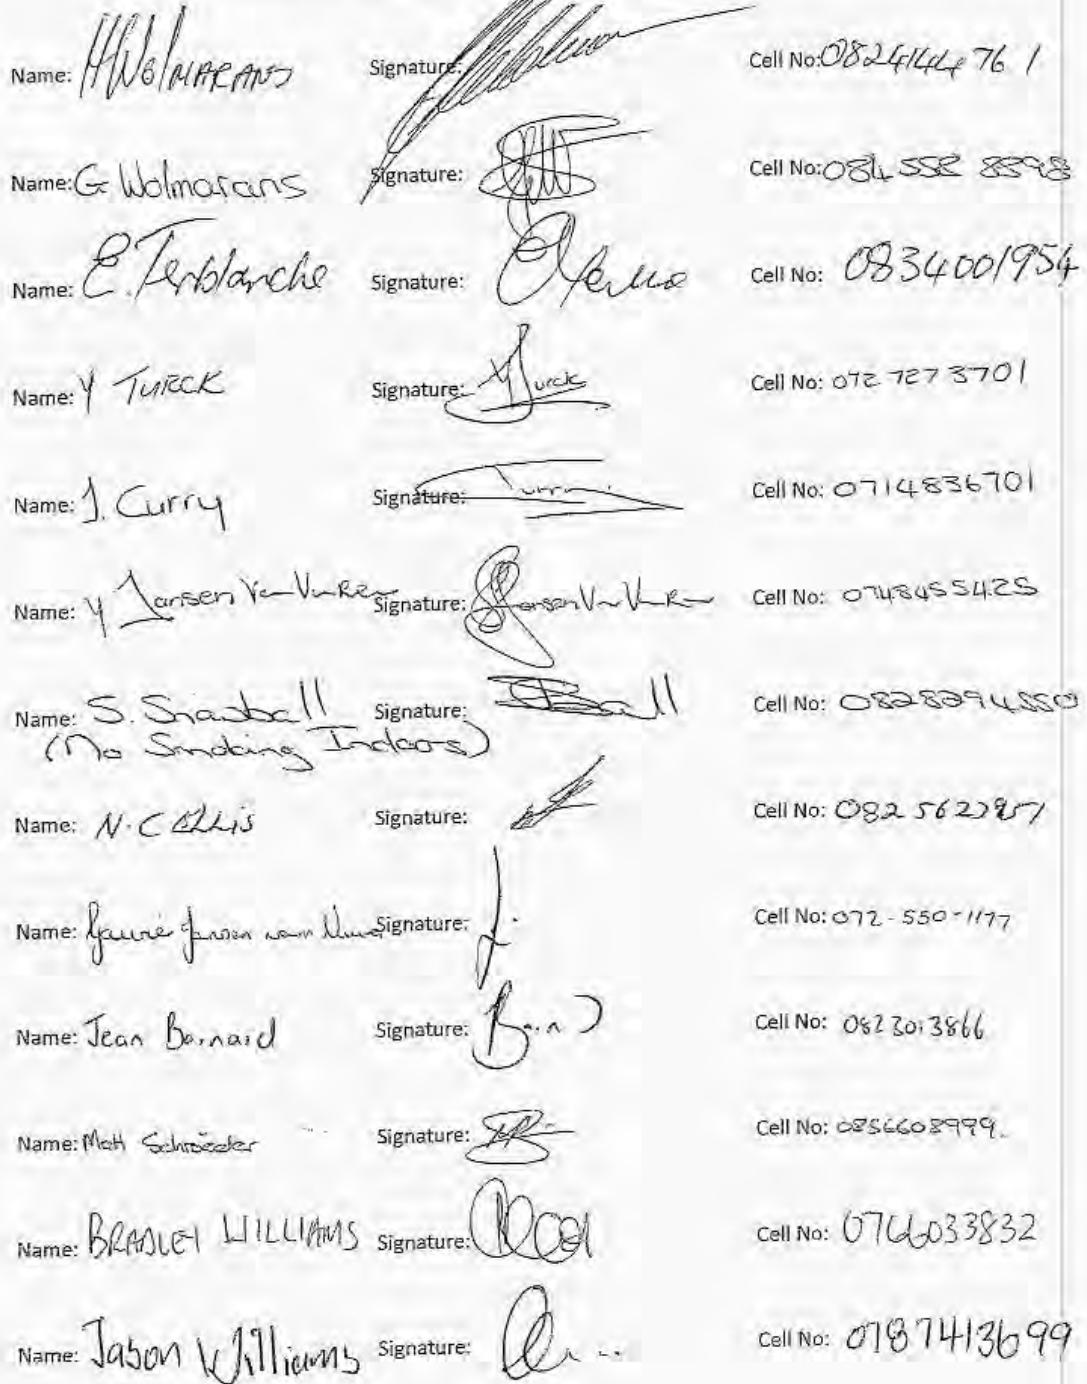 Name: HWolmarans Signature: Cell No: 0824144761
Name: G. Wolmarans Signature: Cell No: 084 558 8398
Name: E. Terblanche Signature: Cell No: 0834001954
Name: Y TURCK Signature: Y Turck Cell No: 072 727 3701
Name: J. Curry Signature: Cell No: 0714836701
Name: Y Jansen Van Vuuren Signature: Jansen Van Vuuren Cell No: 0748455425
Name: S. Snowball Signature: Cell No: 0828294550
(No Smoking Indoors)
Name: N. C ELLIS Signature: Cell No: 082
Name: Jansen van Signature: Cell No: 072-550-1177
Name: Jean Barnard Signature: Cell No: 0823013866
Name: Matt Schroeder Signature: Cell No: 0856608999.
Name: BRADLEY WILLIAMS Signature: Cell No: 0766033832
Name: Jason Williams Signature: Cell No: 0787413699